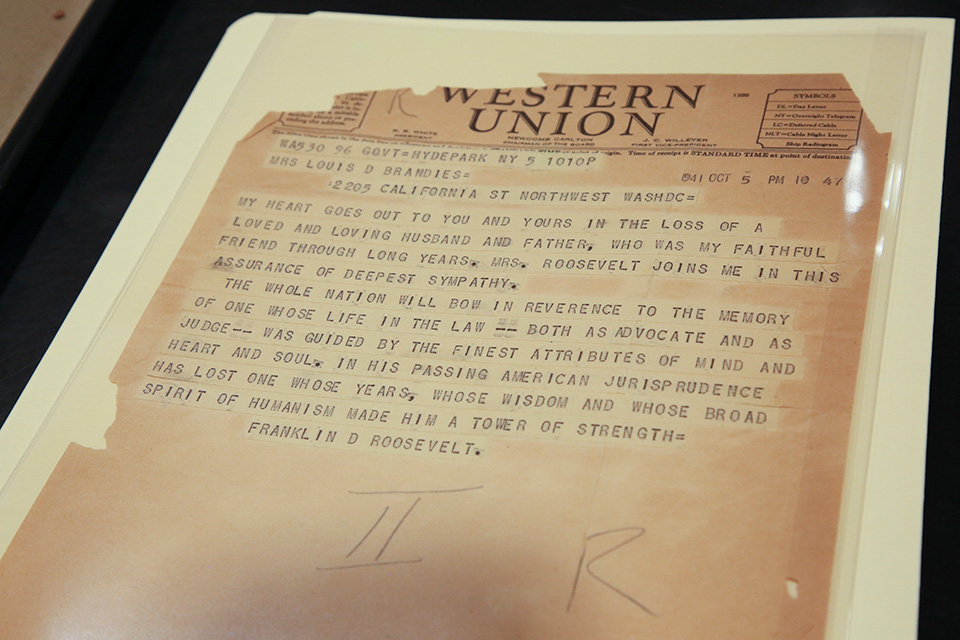 WESTERN
UNION
1220
SYMBOLS
DL=Day Letter
NT=Overnight Telegram
LC=Deferred Cable
NLT=Cable Night Letter
Ship Radiogram
R
R. B. WHITE
PRESIDENT
NEWCOMB CARLTON
CHAIRMAN OF THE BOARD
J. C. WILLEVER
FIRST VICE-PRESIDENT
Time of receipt is STANDARD TIME at point of destination
WA530 96 GOVT=HYDEPARK NY 5 1010P
1941 OCT 5 PM 10 47
MRS LOUIS D BRANDIES=
:2205 CALIFORNIA ST NORTHWEST WASHDC=
MY HEART GOES OUT TO YOU AND YOURS IN THE LOSS OF A
LOVED AND LOVING HUSBAND AND FATHER, WHO WAS MY FAITHFUL
FRIEND THROUGH LONG YEARS. MRS. ROOSEVELT JOINS ME IN THIS
ASSURANCE OF DEEPEST SYMPATHY.
THE WHOLE NATION WILL BOW IN REVERENCE TO THE MEMORY
OF ONE WHOSE LIFE IN THE LAW -- BOTH AS ADVOCATE AND AS
JUDGE-- WAS GUIDED BY THE FINEST ATTRIBUTES OF MIND AND
HEART AND SOUL. IN HIS PASSING AMERICAN JURISPRUDENCE
HAS LOST ONE WHOSE YEARS, WHOSE WISDOM AND WHOSE BROAD
SPIRIT OF HUMANISM MADE HIM A TOWER OF STRENGTH=
FRANKLIN D ROOSEVELT.
II
R